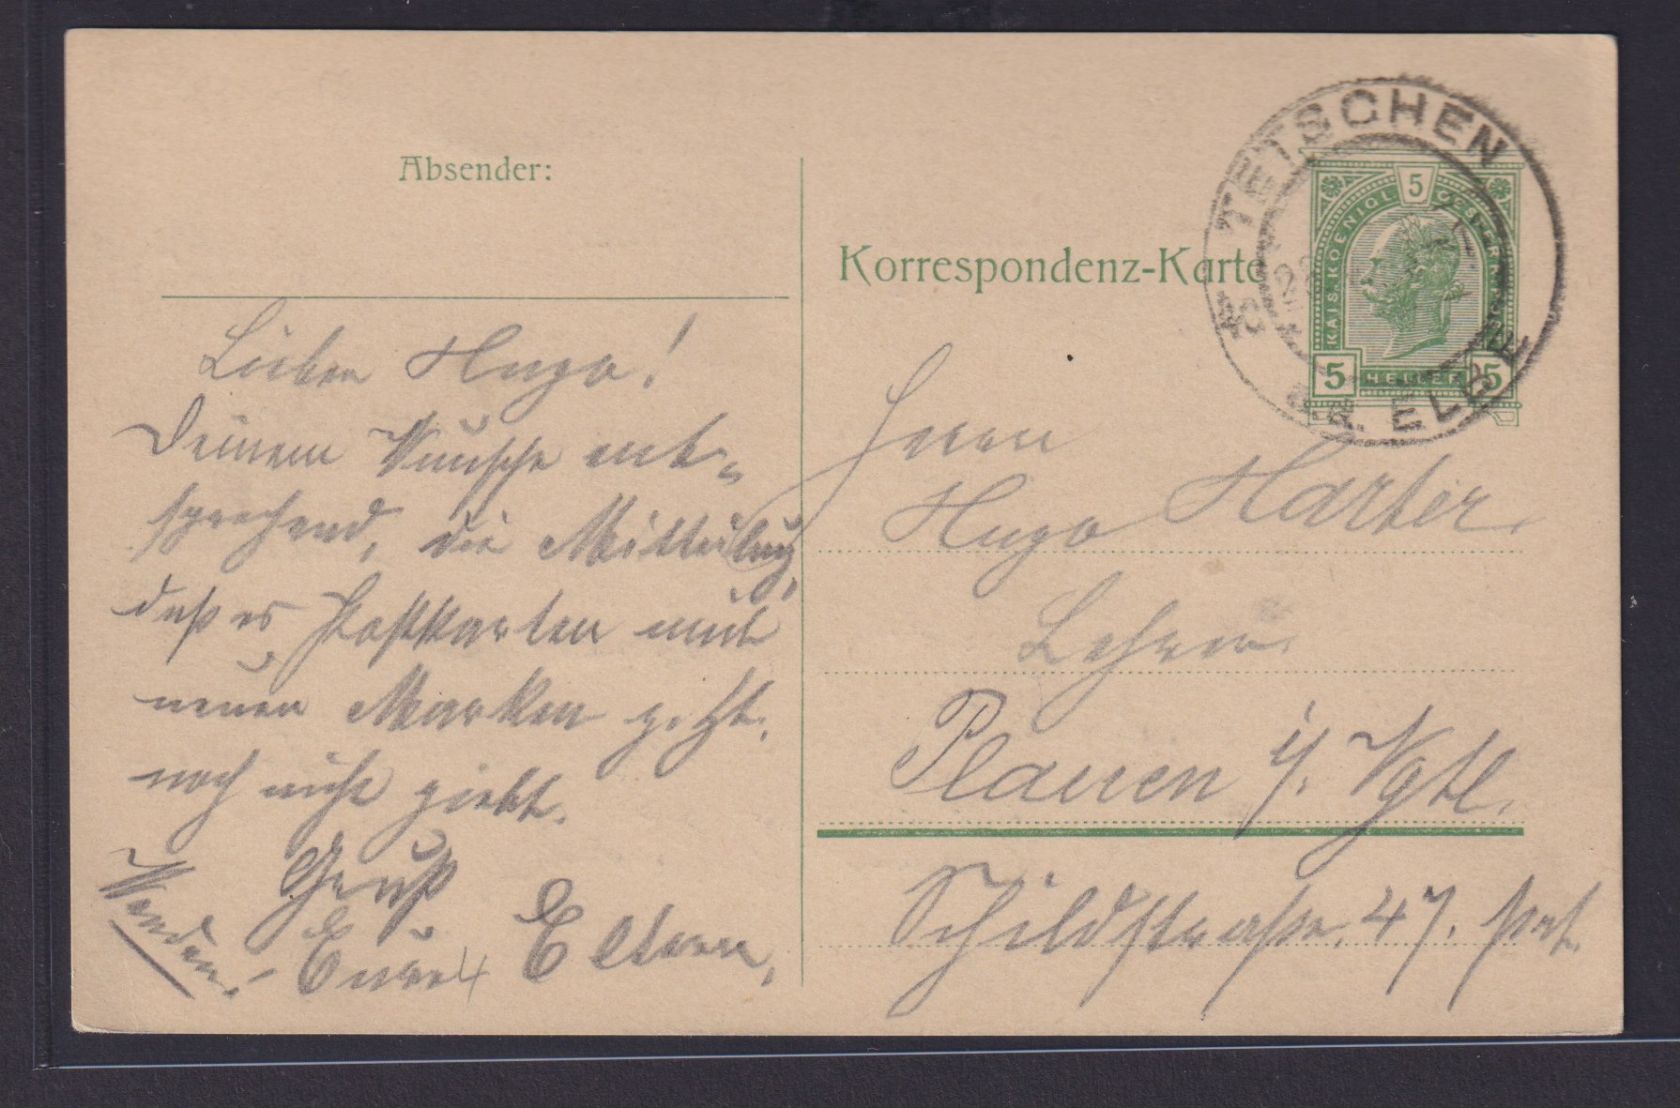 Absender:
Korrespondenz-Karte
TETSCHEN
a.d. ELBE
KAIS. KOENIGL. 5 OESTERR.
5 HELLER 5
Lieber Hugo!
Deinem Wunsche ent-
sprechend, die Mitteilung,
daß es Postkarten mit
neuen Marken z. Zt.
noch nicht giebt.
Gruß
Eure Eltern,
Wenden!
Herrn
Hugo Harter
Lehrer
Plauen i/. Vgtl.
Schildstraße 47. prt.